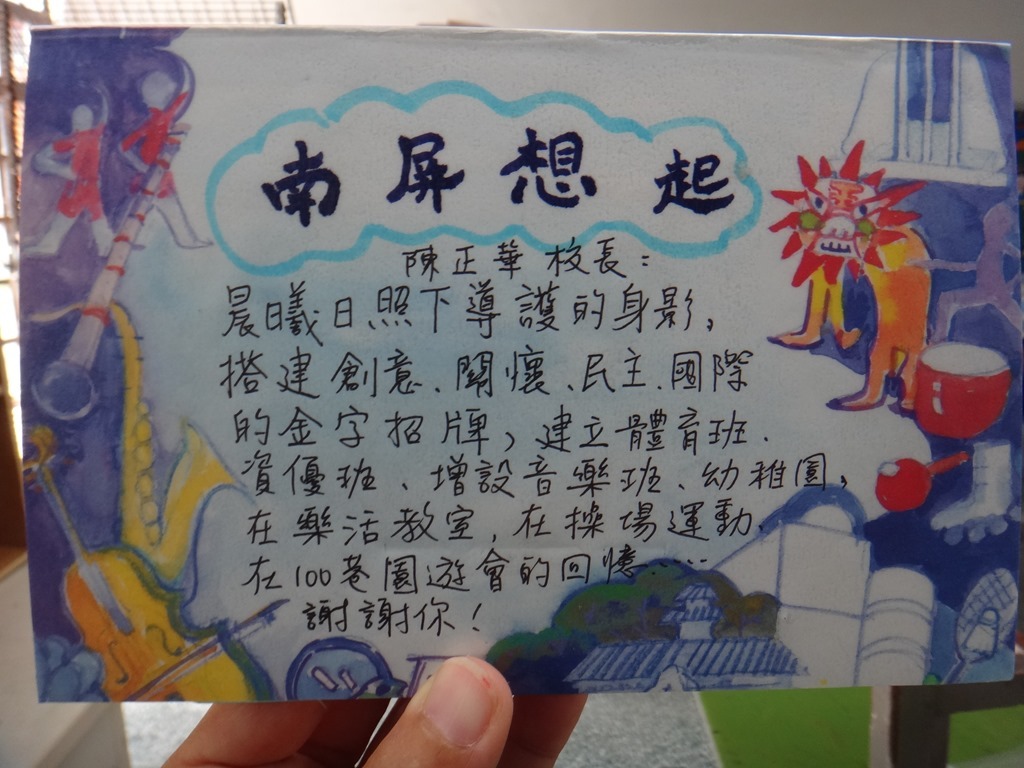 南屏想起
陳正華校長：
晨曦日照下導護的身影，
搭建創意、關懷、民主、國際
的金字招牌，建立體育班、
資優班、增設音樂班、幼稚園，
在樂活教室，在操場運動、
在100巷園遊會的回憶……
謝謝你！